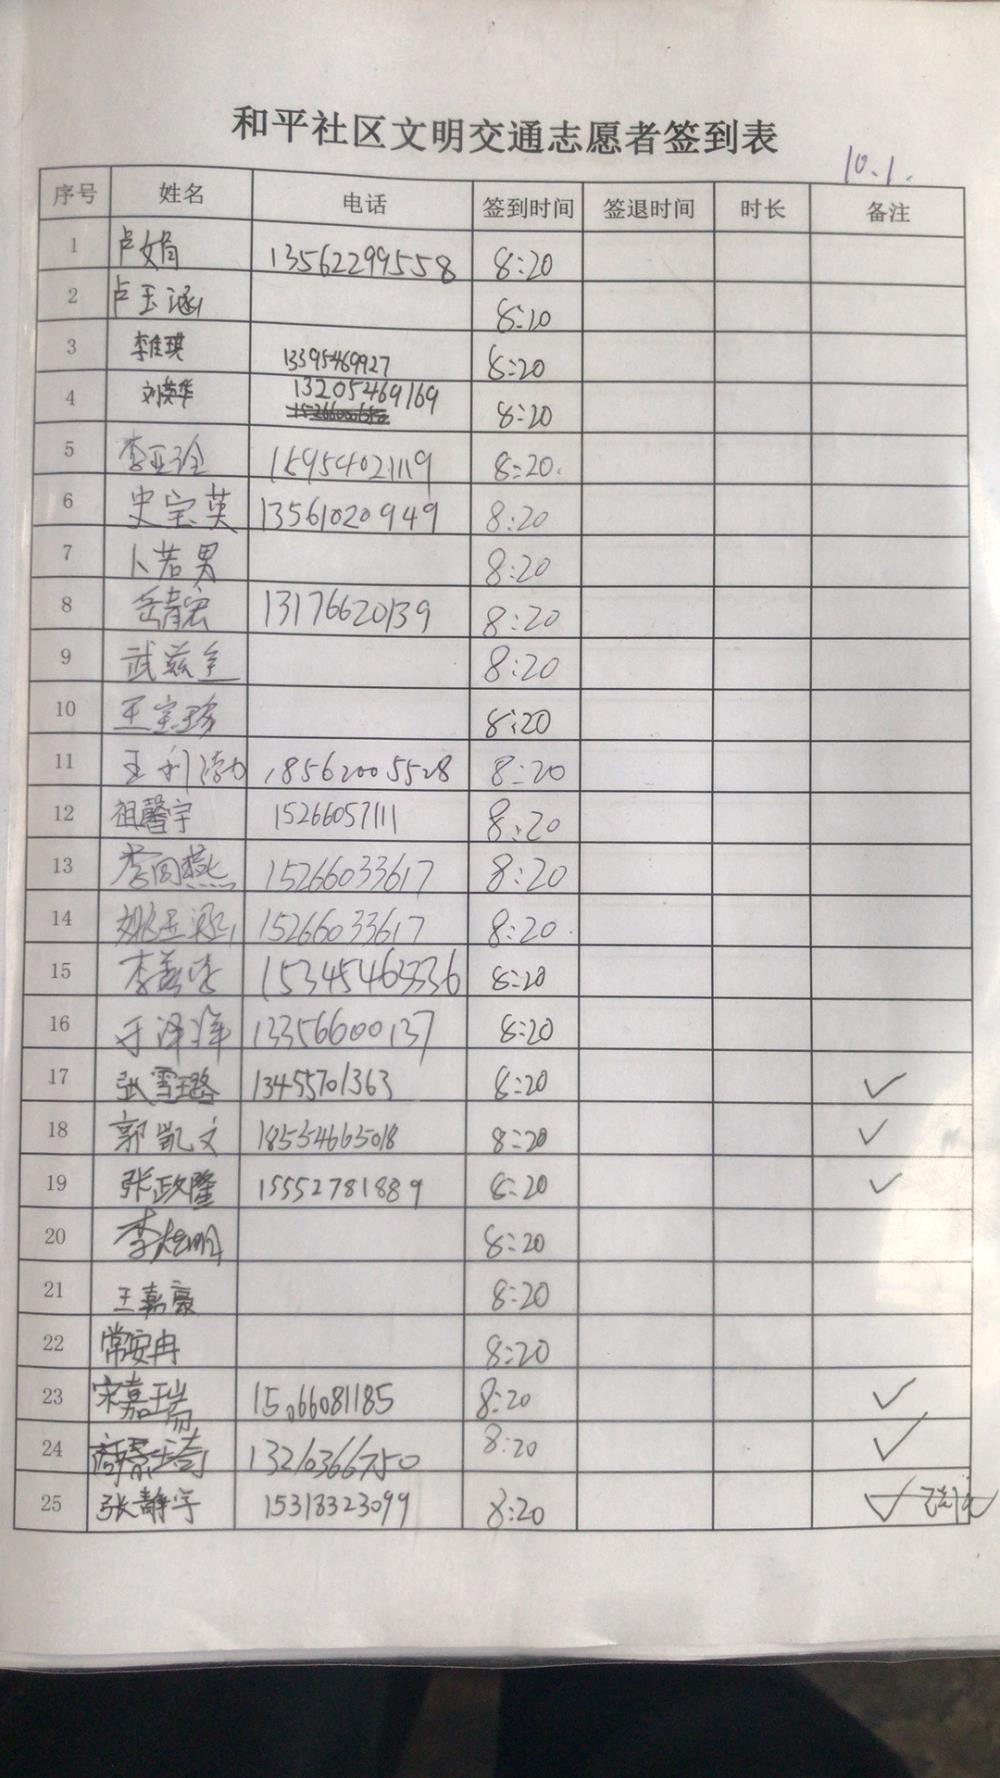 和平社区文明交通志愿者签到表
10.1.
序号 姓名 电话 签到时间 签退时间 时长 备注
1 卢文娟 13562299558 8:20
2 卢玉涵 8:20
3 李佳琪 13395469927 8:20
4 刘英华 13205469169 8:20
5 李亚玲 15954021119 8:20
6 史宝英 13561020949 8:20
7 卜若男 8:20
8 岳青宏 13176620139 8:20
9 武兹全 8:20
10 王宝珍 8:20
11 王利涛 18562005528 8:20
12 祖馨宇 15266057111 8:20
13 李固燕 15266033617 8:20
14 姚玉涵 15266033617 8:20
15 李 15345463336 8:20
16 于泽洋 13356600137 8:20
17 张雪璐 13455701363 8:20 ✓
18 郭凯文 18554665018 8:20 ✓
19 张政隆 15552781889 8:20 ✓
20 李 8:20
21 王嘉豪 8:20
22 常安冉 8:20
23 宋嘉瑞 15066081185 8:20 ✓
24 13210366750 8:20 ✓
25 张静宇 15318323099 8:20 ✓